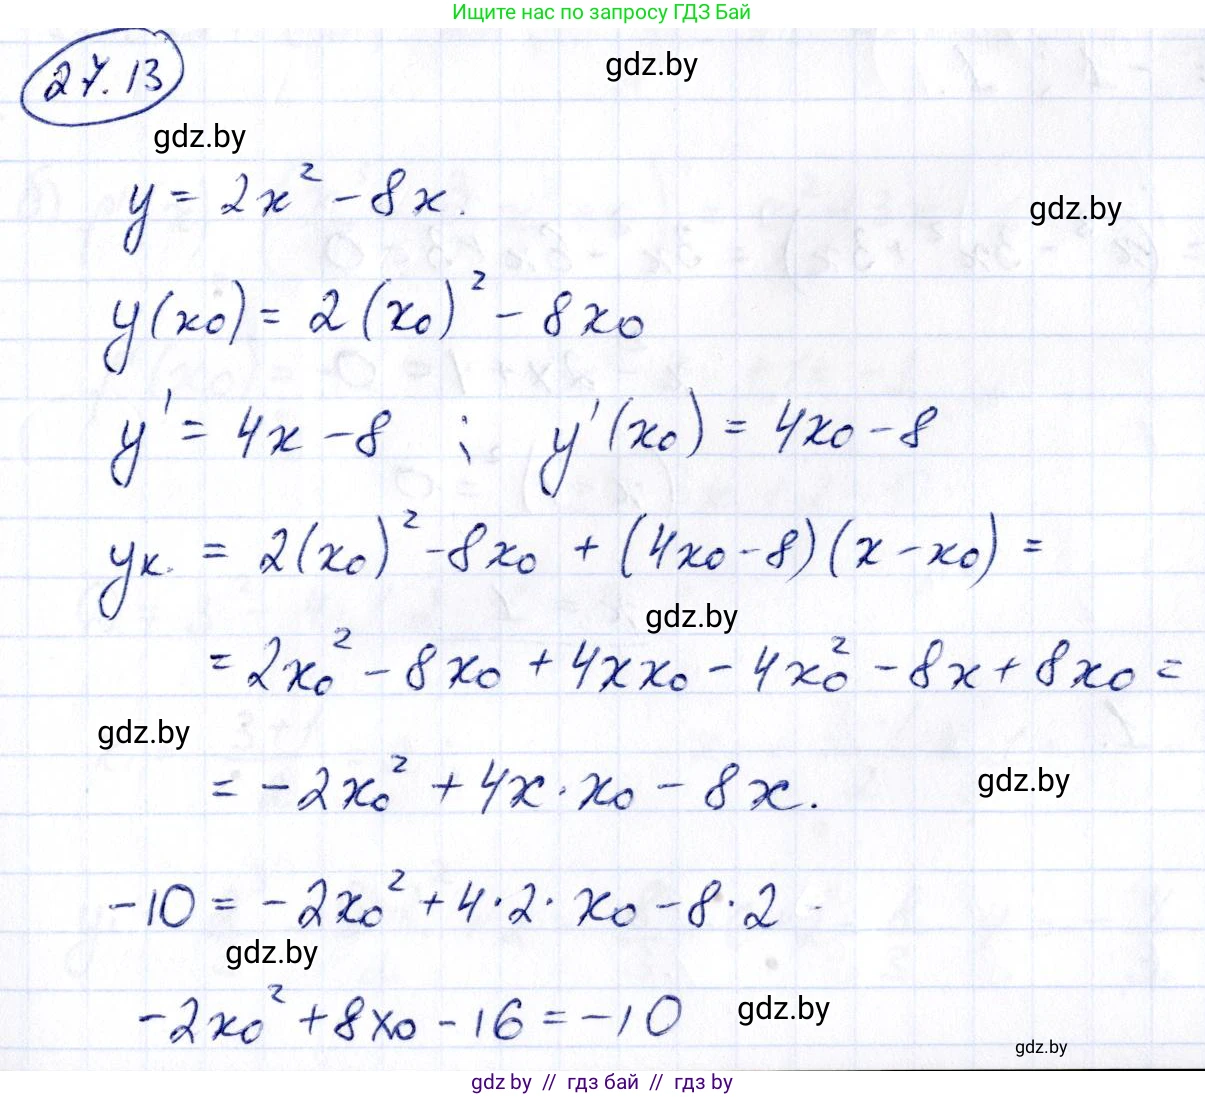 Ищите нас по запросу ГДЗ Бай
27.13
gdz.by
gdz.by
y = 2x² - 8x.
gdz.by
y(x₀) = 2(x₀)² - 8x₀
y' = 4x - 8 ; y'(x₀) = 4x₀ - 8
yк. = 2(x₀)² - 8x₀ + (4x₀ - 8)(x - x₀) =
gdz.by
= 2x₀² - 8x₀ + 4xx₀ - 4x₀² - 8x + 8x₀ =
gdz.by
= -2x₀² + 4x·x₀ - 8x.
gdz.by
-10 = -2x₀² + 4·2·x₀ - 8·2
gdz.by
-2x₀² + 8x₀ - 16 = -10
gdz.by
gdz.by
gdz by // гдз бай // гдз by